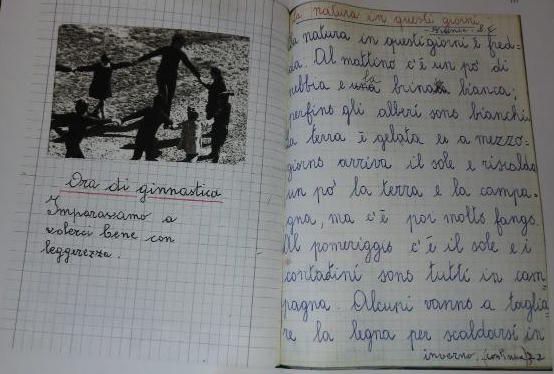 Ora di ginnastica
Imparassamo a
volerci bene con
leggerezza.
La natura in questi giorni
La natura in questi giorni è fred-
da. Al mattino c'è un po' di
nebbia e la brina bianca;
perfino gli alberi sono bianchi
la terra è gelata e a mezzo-
giorno arriva il sole e riscalda
un po' la terra e la campa-
gna, ma c'è poi molto fango.
Al pomeriggio c'è il sole e i
contadini sono tutti in cam
pagna. Alcuni vanno a taglia
re la legna per scaldarsi in
inverno. (continua) 72